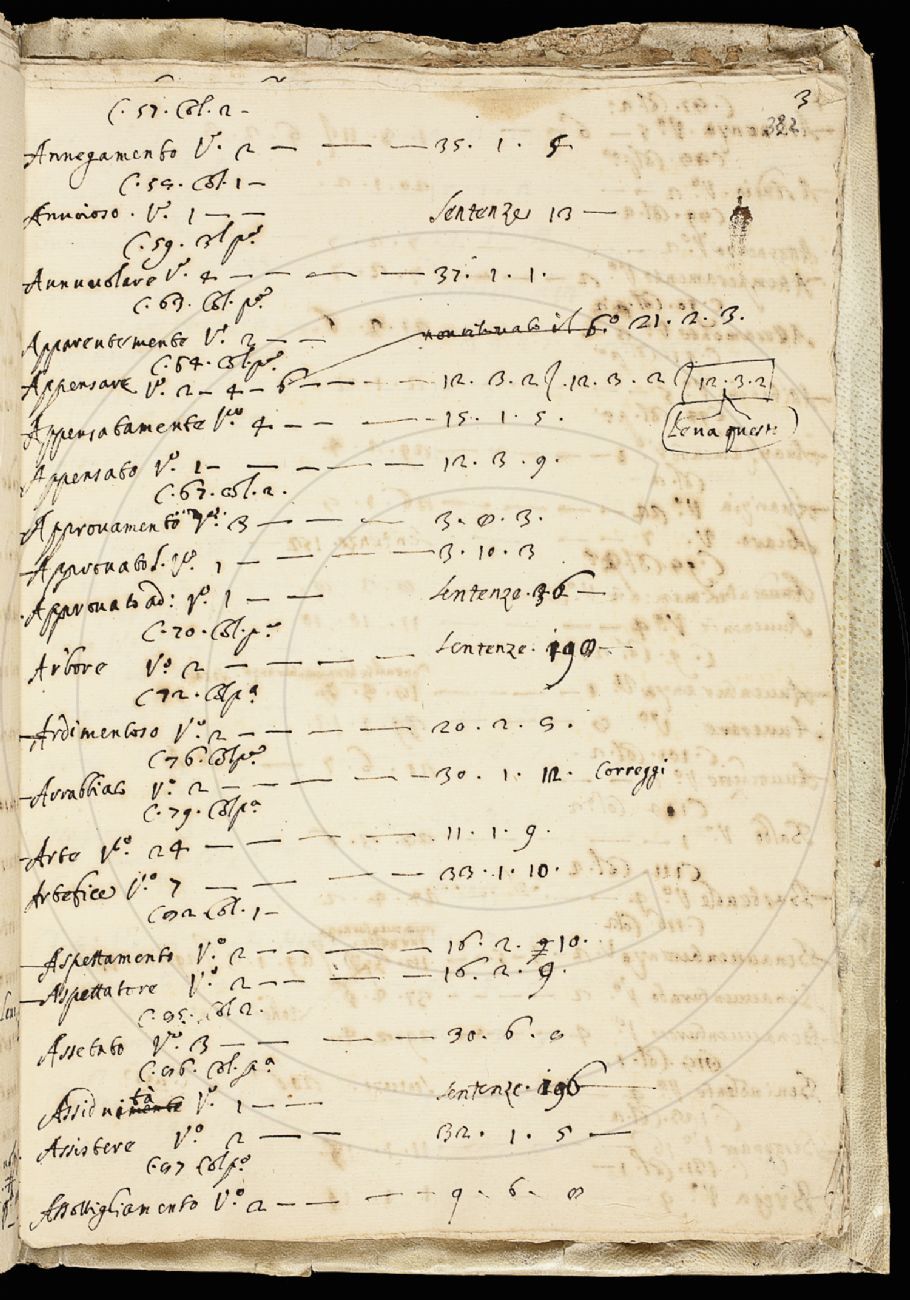 3
382
C. 57. Col. 2 –
Annegamento V.º 2 – — 35. 1. 5
C. 59. Col. 1 –
Annoioso. V.º 1 – — Sentenze 13 —
C. 59. Col pª
Annuvolare V.º 4 – — – — 37. 1. 1.
C. 63. Col. pª
Apparentemente V.º 2 – –
non citinato il 6º 21. 2. 3.
C. 64. Col. pª
Appensare V.º 2 – 4 – 6 – — — 12. 3. 2 /. 12. 3. 2 / 12. 3. 2
Leva questi
Appensatamente V.º 4 – — — 15. 1. 5.
Appensato V.º 1 – — — — 12. 3. 9.
C. 67. Col. 2.
Approvamento V.º 3 – — — 3. 8. 3.
Approvato S. V.º 1 – — — 3. 10. 3
Approvato ad: V.º 1 — — Sentenze. 36 —
C. 70. Col. pª
Arbore V.º 2 – — — Sentenze. 198 —
C 72. Col pª
Ardimentoso V.º 2 – — — 20. 2. 5.
C 76. Col pª
Arrabbiato V.º 2 – — — 30. 1. 12. Correggi
C. 79. Col pª
Arte V.º 24 — — — 11. 1. 9.
Artefice V.º 7 — — — 33. 1. 10.
C 92 Col. 1 –
Aspettamento V.º 2 – — — 16. 2. 9 10.
Aspettatore V.º 2 – — — 16. 2. 9.
C. 95. Col 2.
Assetato V.º 3 – — — 30. 6. 8
C. 96. Col. pª
Assiduimente tà V.º 1 – — Sentenze. 196 —
Assistere V.º 2 — — 32. 1. 5 —
C. 97 Col pª
Assottigliamento V.º 2 – — — 9. 6. 8